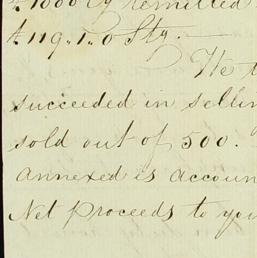 £1000 Cy Remitted
£119.. 1.. 0 Stg.
We
succeeded in sellin
sold out of 500.
annexed is accoun
Net Proceeds to you